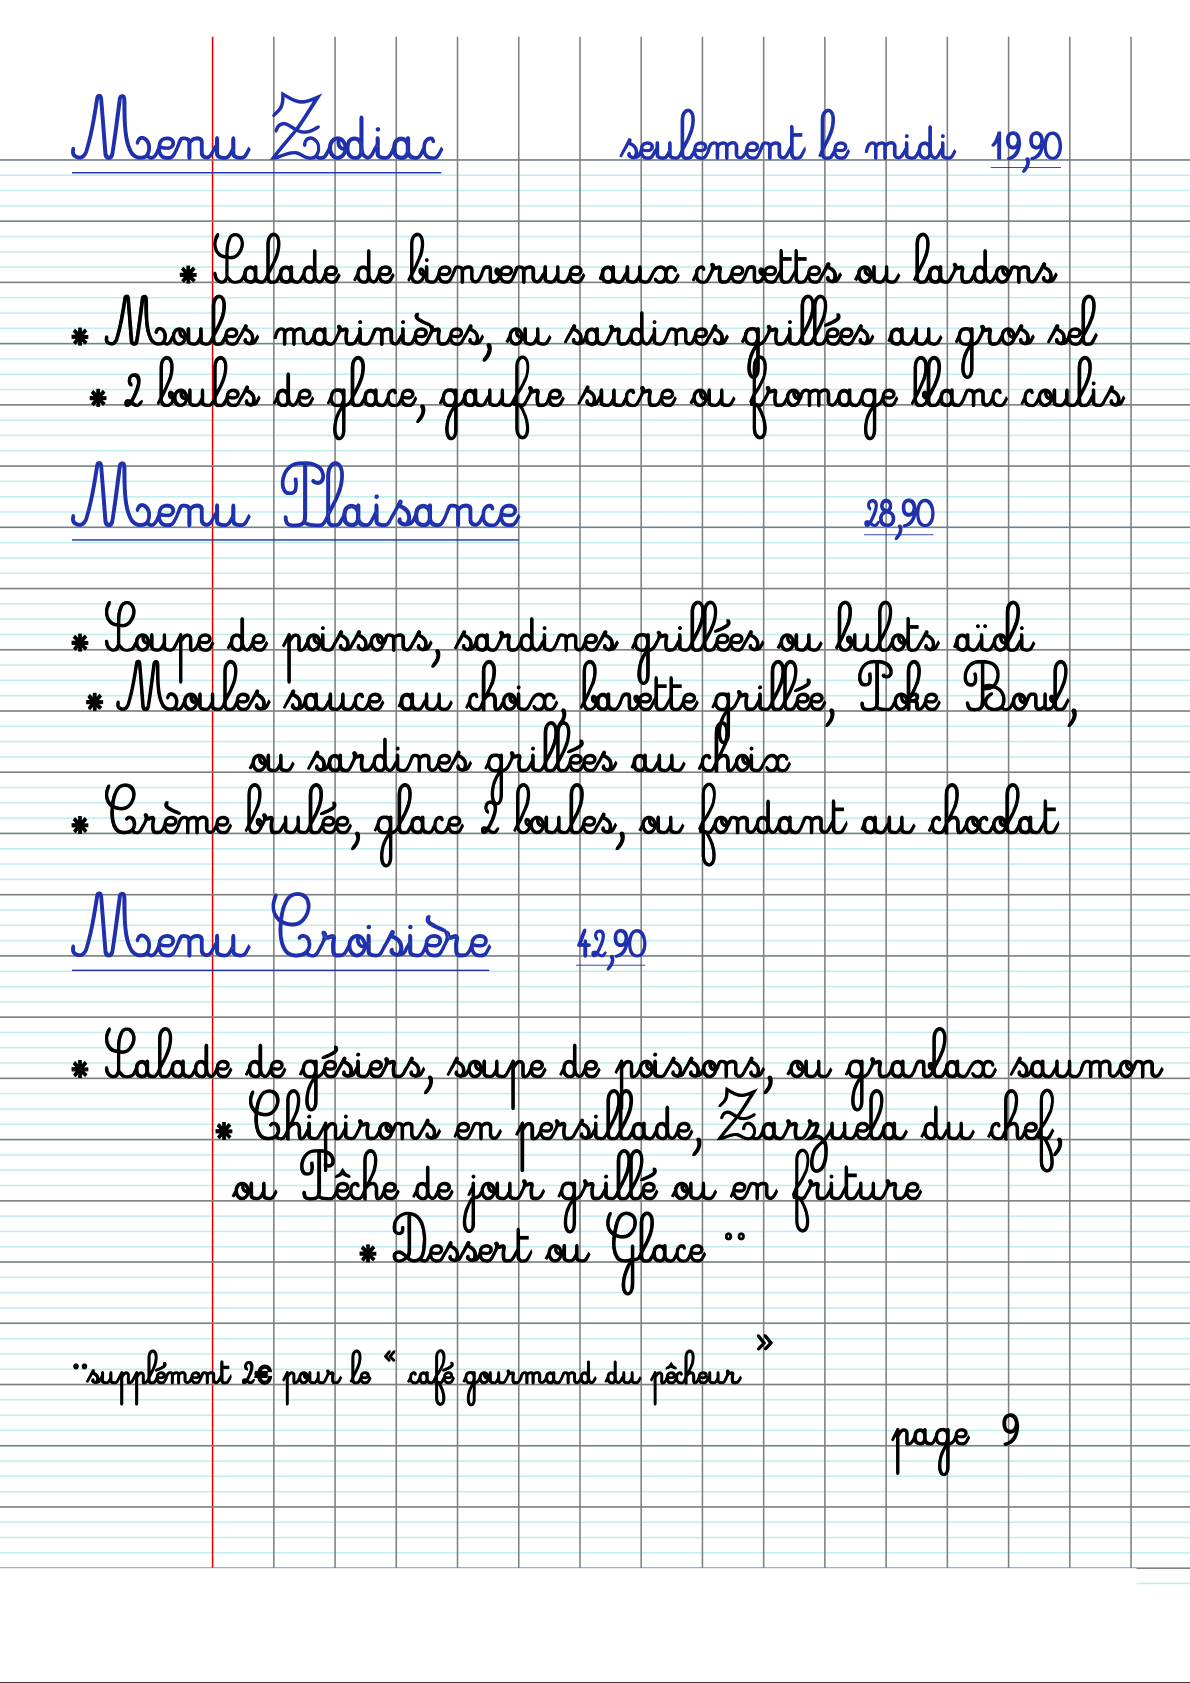 Menu Zodiac seulement le midi 19,90
* Salade de bienvenue aux crevettes ou lardons
* Moules marinières, ou sardines grillées au gros sel
* 2 boules de glace, gaufre sucre ou fromage blanc coulis
Menu Plaisance 28,90
* Soupe de poissons, sardines grillées ou bulots aïoli
* Moules sauce au choix, bavette grillée, Poke Bowl,
ou sardines grillées au choix
* Crème brulée, glace 2 boules, ou fondant au chocolat
Menu Croisière 42,90
* Salade de gésiers, soupe de poissons, ou gravlax saumon
* Chipirons en persillade, Zarzuela du chef,
ou Pêche de jour grillé ou en friture
* Dessert ou Glace °°
¨supplément 2€ pour le « café gourmand du pêcheur »
page 9